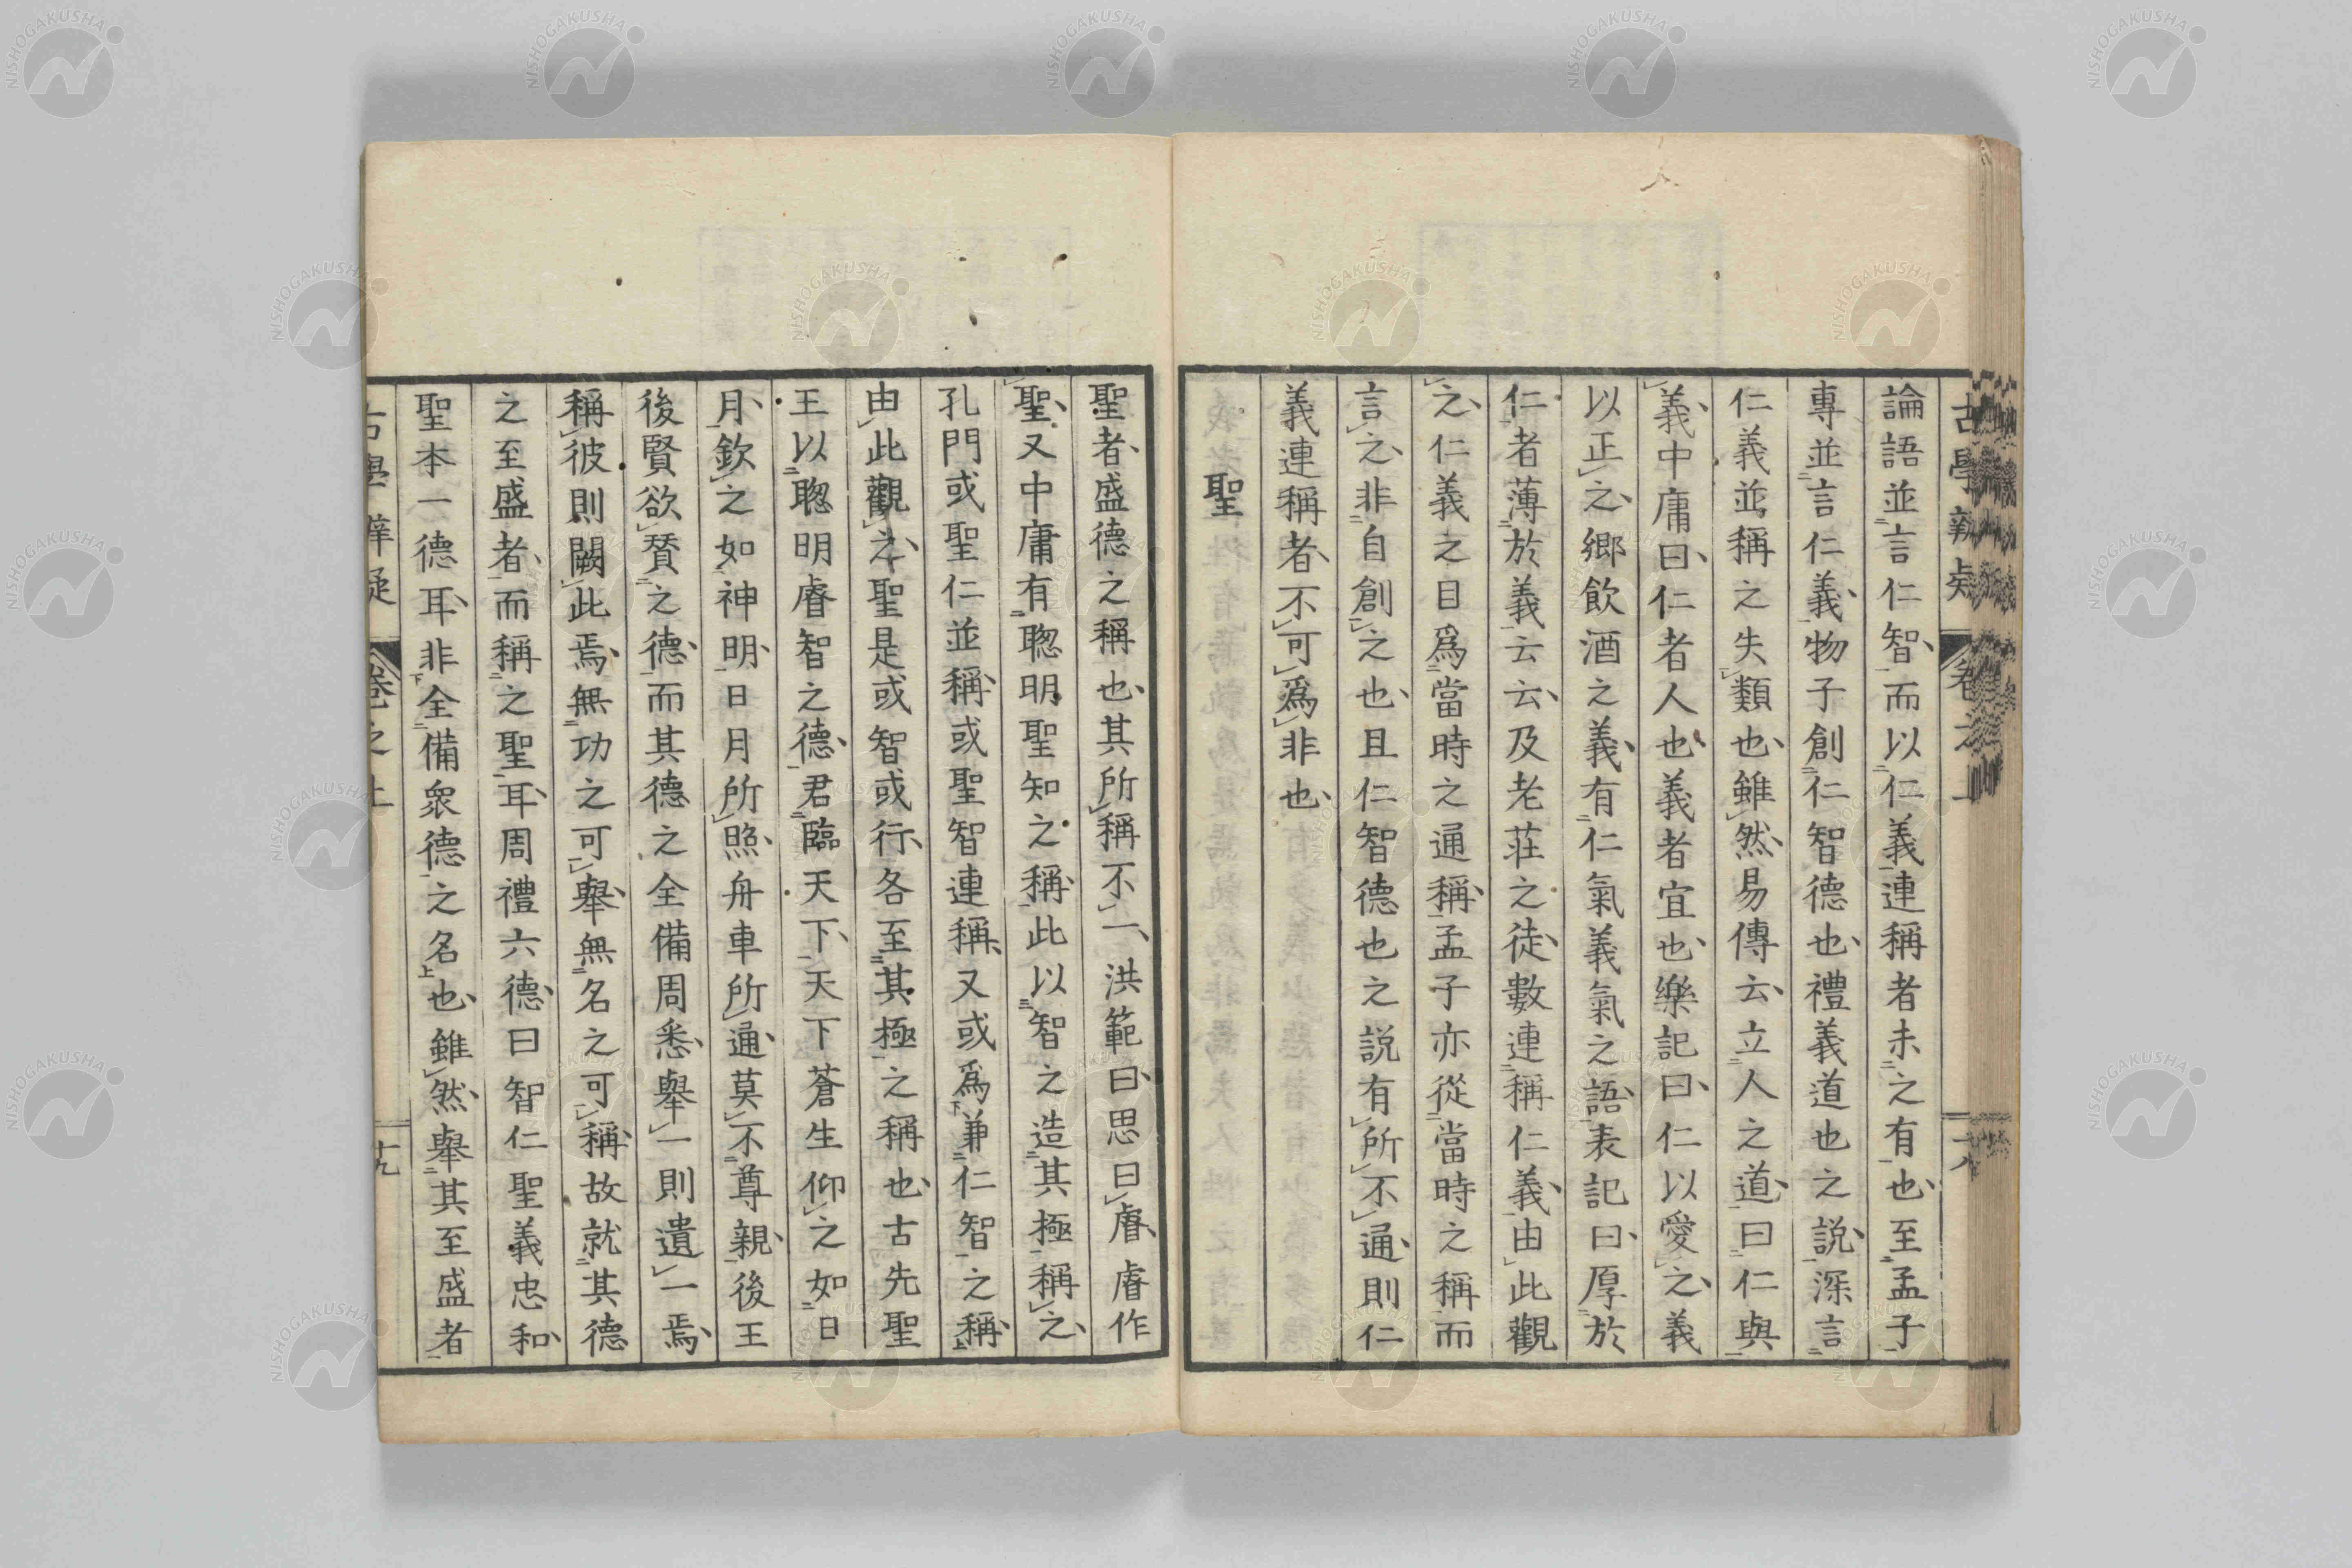 論語並言仁智而以仁義連稱者未之有也至孟子
專並言仁義物子創仁智德也禮義道也之説深言
仁義並稱之失類也雖然易傳云立人之道曰仁與
義中庸曰仁者人也義者宜也樂記曰仁以愛之義
以正之鄉飲酒之義有仁氣義氣之語表記曰厚於
仁者薄於義云云及老莊之徒數連稱仁義由此觀
之仁義之目爲當時之通稱孟子亦從當時之稱而
言之非自創之也且仁智德也之説有所不通則仁
義連稱者不可爲非也
聖
聖者盛德之稱也其所稱不一洪範曰思曰睿睿作
聖又中庸有聰明聖知之稱此以智之造其極稱之
孔門或聖仁並稱或聖智連稱又或爲兼仁智之稱
由此觀之聖是或智或行各至其極之稱也古先聖
王以聰明睿智之德君臨天下天下蒼生仰之如日
月欽之如神明日月所照舟車所通莫不尊親後王
後賢欲贊之德而其德之全備周悉舉一則遺一焉
稱彼則闕此焉無功之可舉無名之可稱故就其德
之至盛者而稱之聖耳周禮六德曰智仁聖義忠和
聖本一德耳非全備衆德之名也雖然舉其至盛者
古學辨疑 卷之上 十九
NISHOGAKUSHA